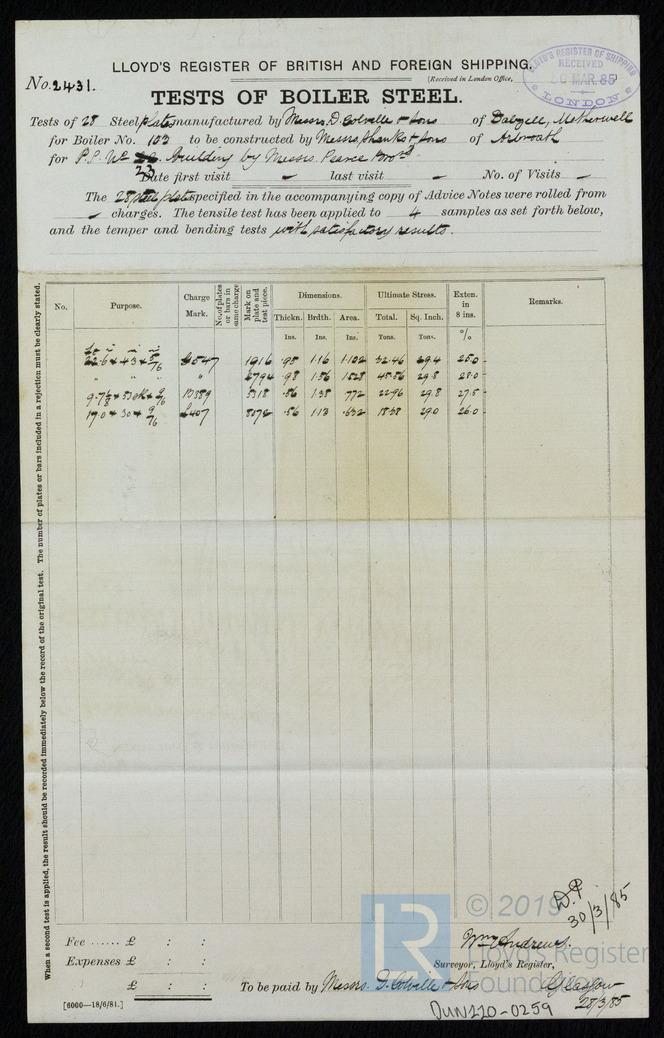 LLOYD'S REGISTER OF BRITISH AND FOREIGN SHIPPING.
No. 2431.
(Received in London Office,
LLOYD'S REGISTER OF SHIPPING
RECEIVED
MAR. 85
LONDON
TESTS OF BOILER STEEL.
Tests of 28 Steel plates manufactured by Messrs. D. Colville & Sons of Dalzell, Motherwell
for Boiler No. 103 to be constructed by Messrs Shanks & Sons of Arbroath
for P.S. No building by Messrs. Pearce Bros
23
Date first visit – last visit – No. of Visits –
The 28 steel plates specified in the accompanying copy of Advice Notes were rolled from
– charges. The tensile test has been applied to 4 samples as set forth below,
and the temper and bending tests with satisfactory results.
No. Purpose. Charge Mark. No. of plates or bars in same charge Mark on plate and test piece. Dimensions. Ultimate Stress. Exten. in 8 ins. Remarks.
Thickn. Brdth. Area. Total. Sq. Inch.
Ins. Ins. Ins. Tons. Tons. %
1916 .98 1.16 32.46 29.4 25.0
6794 .98 1.56 1528 45.56 29.8 28.0
5318 .56 1.38 .772 22.96 29.8 27.5
17.0 x 30 x 9/16 £407 8072 .56 1.13 .632 18.38 29.0 26.0
When a second test is applied, the result should be recorded immediately below the record of the original test. The number of plates or bars included in a rejection must be clearly stated.
D.P
30/3/85
Fee ...... £ : :
Wm Andrews.
Expenses £ : :
Surveyor, Lloyd's Register,
£ : :
To be paid by Messrs. D. Colville & Sons
Glasgow
28/3/85
[6000—18/6/81.]
DUN220-0259
LR
© 2019
Lloyds Register
Foundation